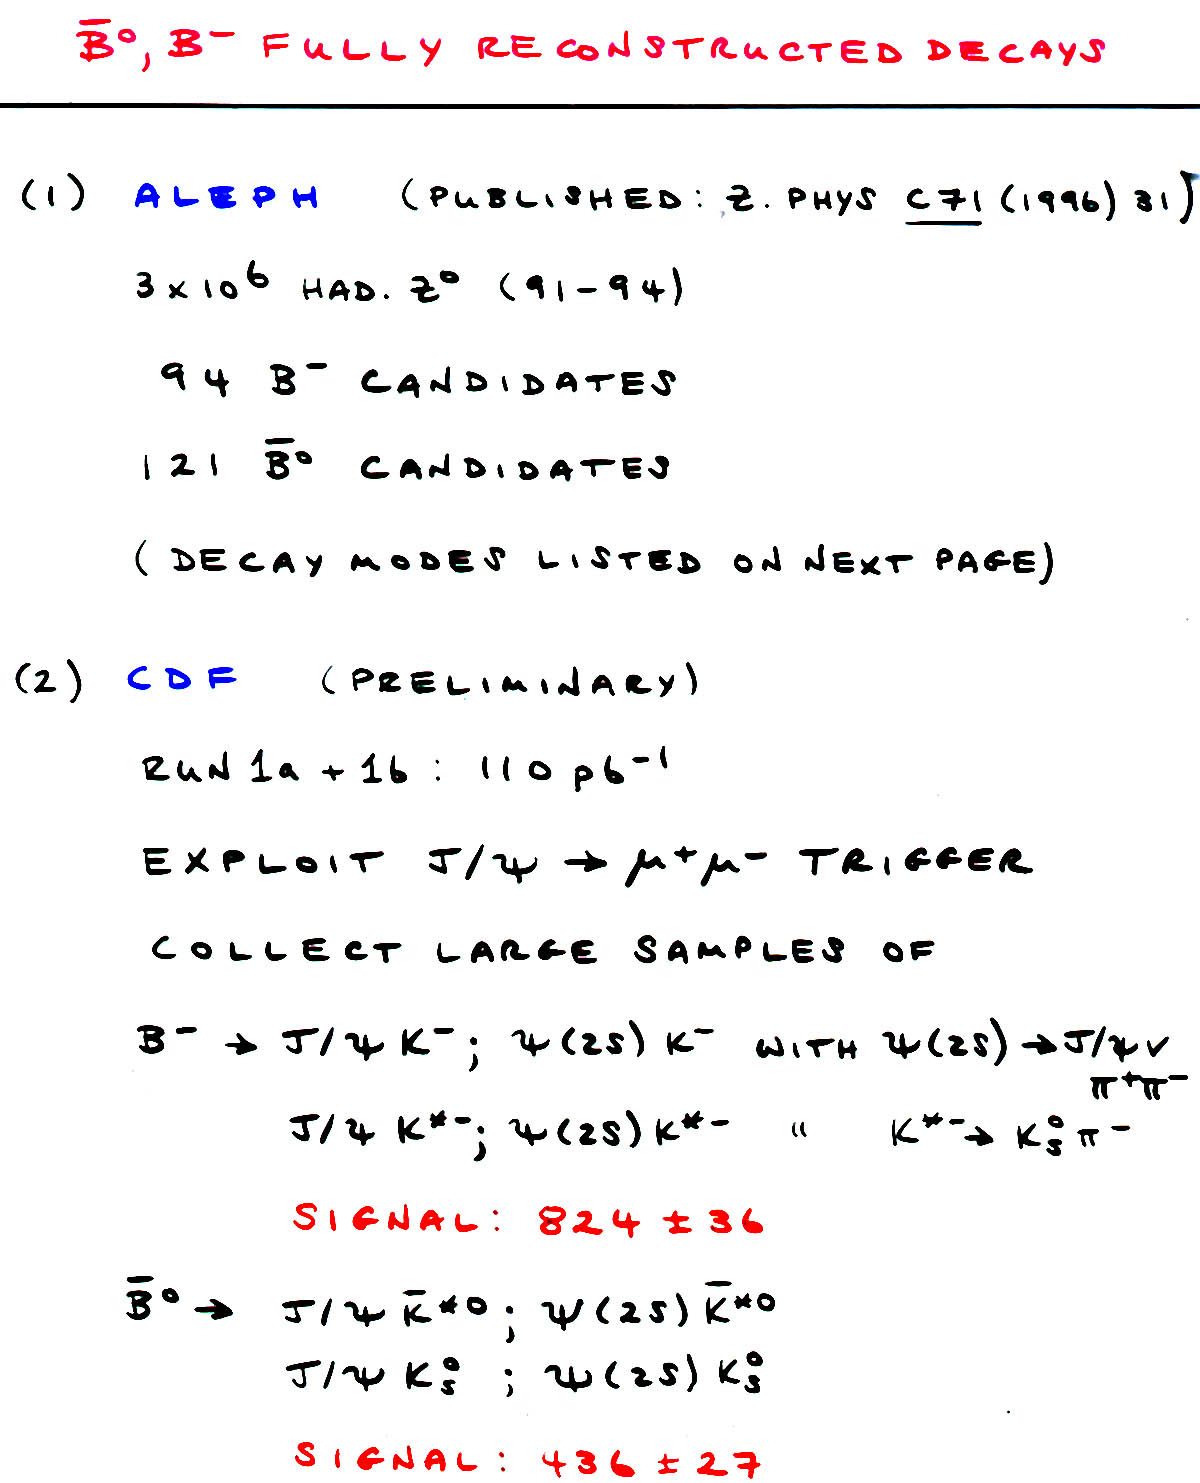 B̄⁰, B⁻ FULLY RECONSTRUCTED DECAYS
(1) ALEPH (PUBLISHED: Z. PHYS C71 (1996) 31)
3 x 10⁶ HAD. Z⁰ (91-94)
94 B⁻ CANDIDATES
121 B̄⁰ CANDIDATES
(DECAY MODES LISTED ON NEXT PAGE)
(2) CDF (PRELIMINARY)
RUN 1a + 1b : 110 pb⁻¹
EXPLOIT J/ψ → μ⁺μ⁻ TRIGGER
COLLECT LARGE SAMPLES OF
B⁻ → J/ψ K⁻; ψ(2S) K⁻ WITH ψ(2S) → J/ψ
π⁺π⁻
J/ψ K*⁻; ψ(2S) K*⁻ " K*⁻ → K⁰s π⁻
SIGNAL: 824 ± 36
B̄⁰ → J/ψ K̄*⁰; ψ(2S) K̄*⁰
J/ψ K⁰s ; ψ(2S) K⁰s
SIGNAL: 436 ± 27